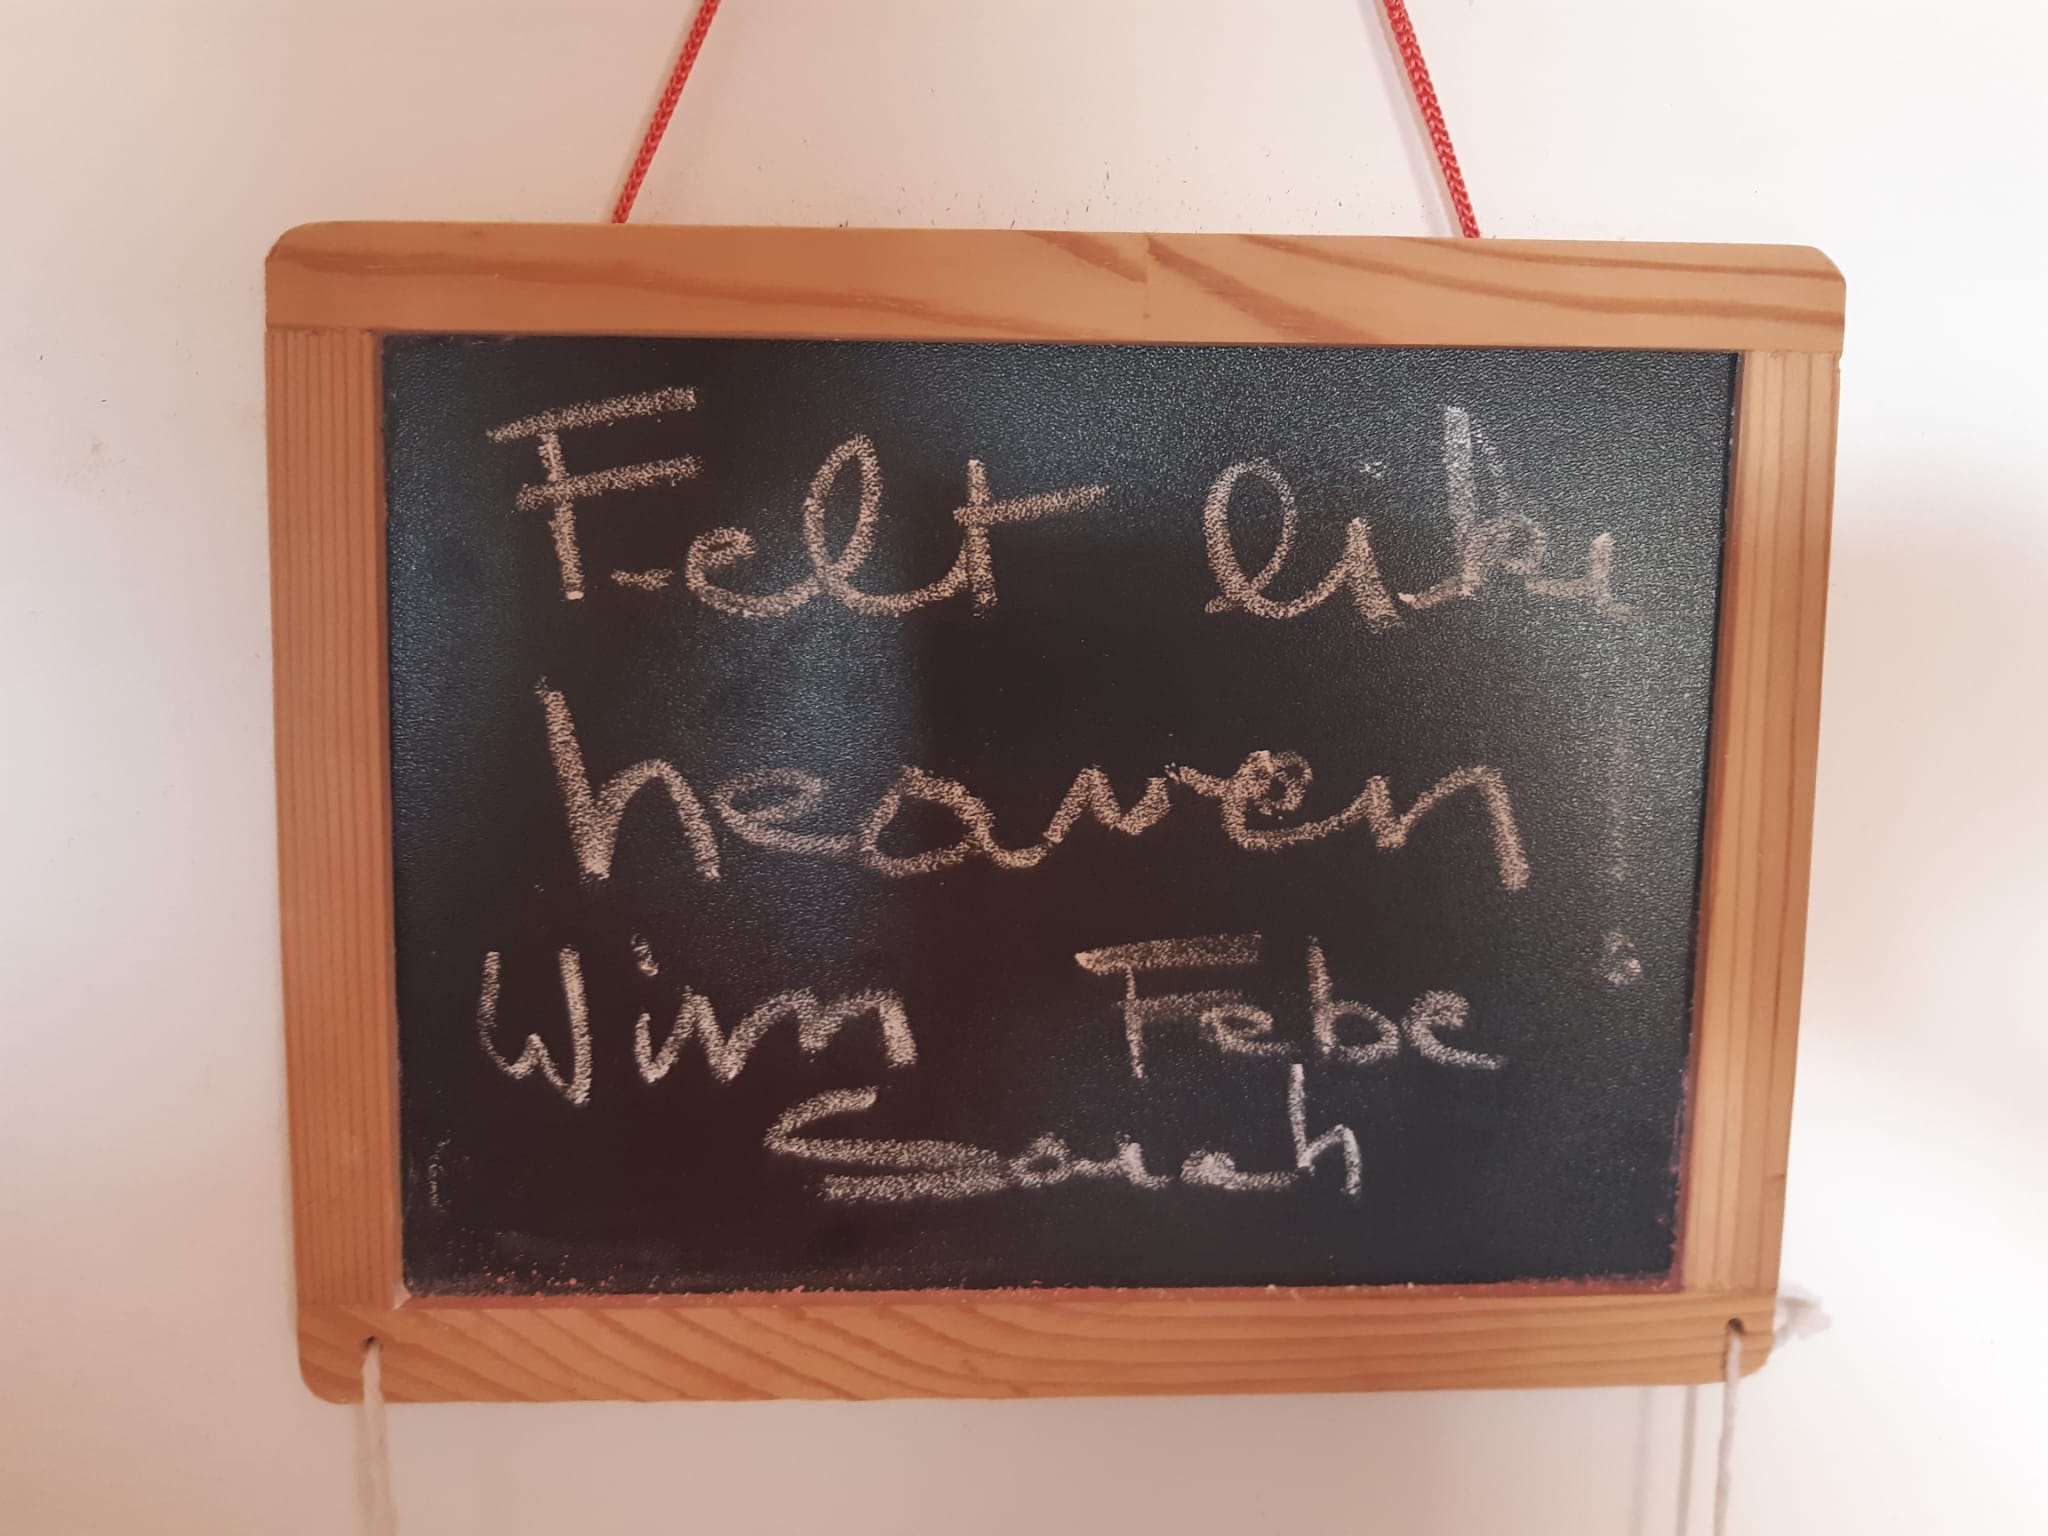 Felt like
heaven!
Wim Febe
Sarah